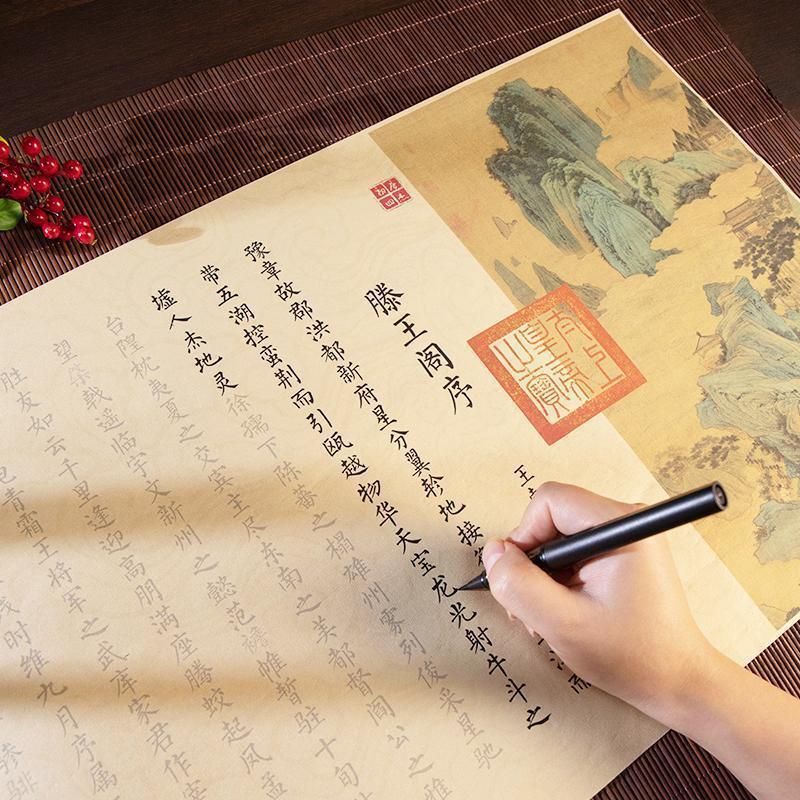 滕王阁序
王
豫章故郡洪都新府星分翼轸地接江而
带五湖控蛮荆而引瓯越物华天宝龙光射牛斗之
墟人杰地灵徐孺下陈蕃之榻雄州雾列俊采星驰
台隍枕夷夏之交宾主尽东南之美都督阎公之雅
望棨戟遥临宇文新州之懿范襜帷暂驻十旬
胜友如云千里逢迎高朋满座腾蛟起凤孟
青霜王将军之武库家君作宰
时维九月序属
骖騑